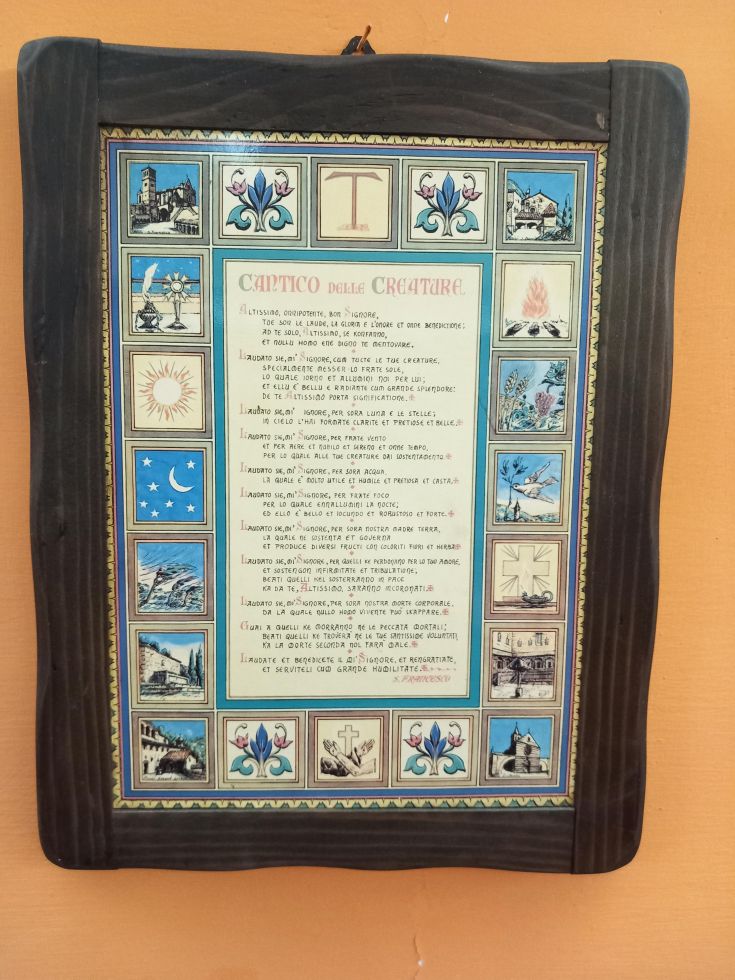 CANTICO DELLE CREATURE
ALTISSIMO, ONNIPOTENTE, BON SIGNORE,
TUE SON LE LAUDE, LA GLORIA E L'ONORE ET ONNE BENEDICTIONE;
AD TE SOLO, ALTISSIMO, SE KONFANNO,
ET NULLU HOMO ENE DIGNO TE MENTOVARE.
LAUDATO SIE, MI' SIGNORE, CUM TUCTE LE TUE CREATURE,
SPECIALMENTE MESSER LO FRATE SOLE,
LO QUALE IORNO ET ALLUMINI NOI PER LUI;
ET ELLU E' BELLU E RADIANTE CUM GRANDE SPLENDORE:
DE TE ALTISSIMO PORTA SIGNIFICATIONE.
LAUDATO SIE, MI' IGNORE, PER SORA LUNA E LE STELLE;
IN CIELO L'HAI FORMATE CLARITE ET PRETIOSE ET BELLE.
LAUDATO SIE, MI' SIGNORE, PER FRATE VENTO
ET PER AERE ET NUBILO ET SERENO ET ONNE TEMPO,
PER LO QUALE ALLE TUE CREATURE DAI SOSTENTAMENTO.
LAUDATO SIE, MI' SIGNORE, PER SORA ACQUA.
LA QUALE E' MOLTO UTILE ET HUMILE ET PRETIOSA ET CASTA.
LAUDATO SIE, MI' SIGNORE, PER FRATE FOCO
PER LO QUALE ENNALLUMINI LA NOCTE;
ED ELLO E' BELLO ET IOCUNDO ET ROBUSTOSO ET FORTE.
LAUDATO SIE, MI' SIGNORE, PER SORA NOSTRA MADRE TERRA,
LA QUALE NE SOSTENTA ET GOVERNA
ET PRODUCE DIVERSI FRUCTI CON COLORITI FIORI ET HERBA
LAUDATO SIE, MI' SIGNORE, PER QUELLI KE PERDONANO PER LO TUO AMORE,
ET SOSTENGON INFIRMITATE ET TRIBULATIONE;
BEATI QUELLI KEL SOSTERRANNO IN PACE
KA DA TE, ALTISSIMO, SARANNO INCORONATI.
LAUDATO SIE, MI' SIGNORE, PER SORA NOSTRA MORTE CORPORALE,
DA LA QUALE NULLO HOMO VIVENTE PUÒ SKAPPARE.
GUAI A QUELLI KE MORRANNO NE LE PECCATA MORTALI;
BEATI QUELLI KE TROVERÀ NE LE TUE SANTISSIME VOLUNTATI,
KA LA MORTE SECONDA NOL FARÀ MALE.
LAUDATE ET BENEDICETE IL MI' SIGNORE, ET RENGRATIATE,
ET SERVITELI CUM GRANDE HUMILITATE.
S. FRANCESCO